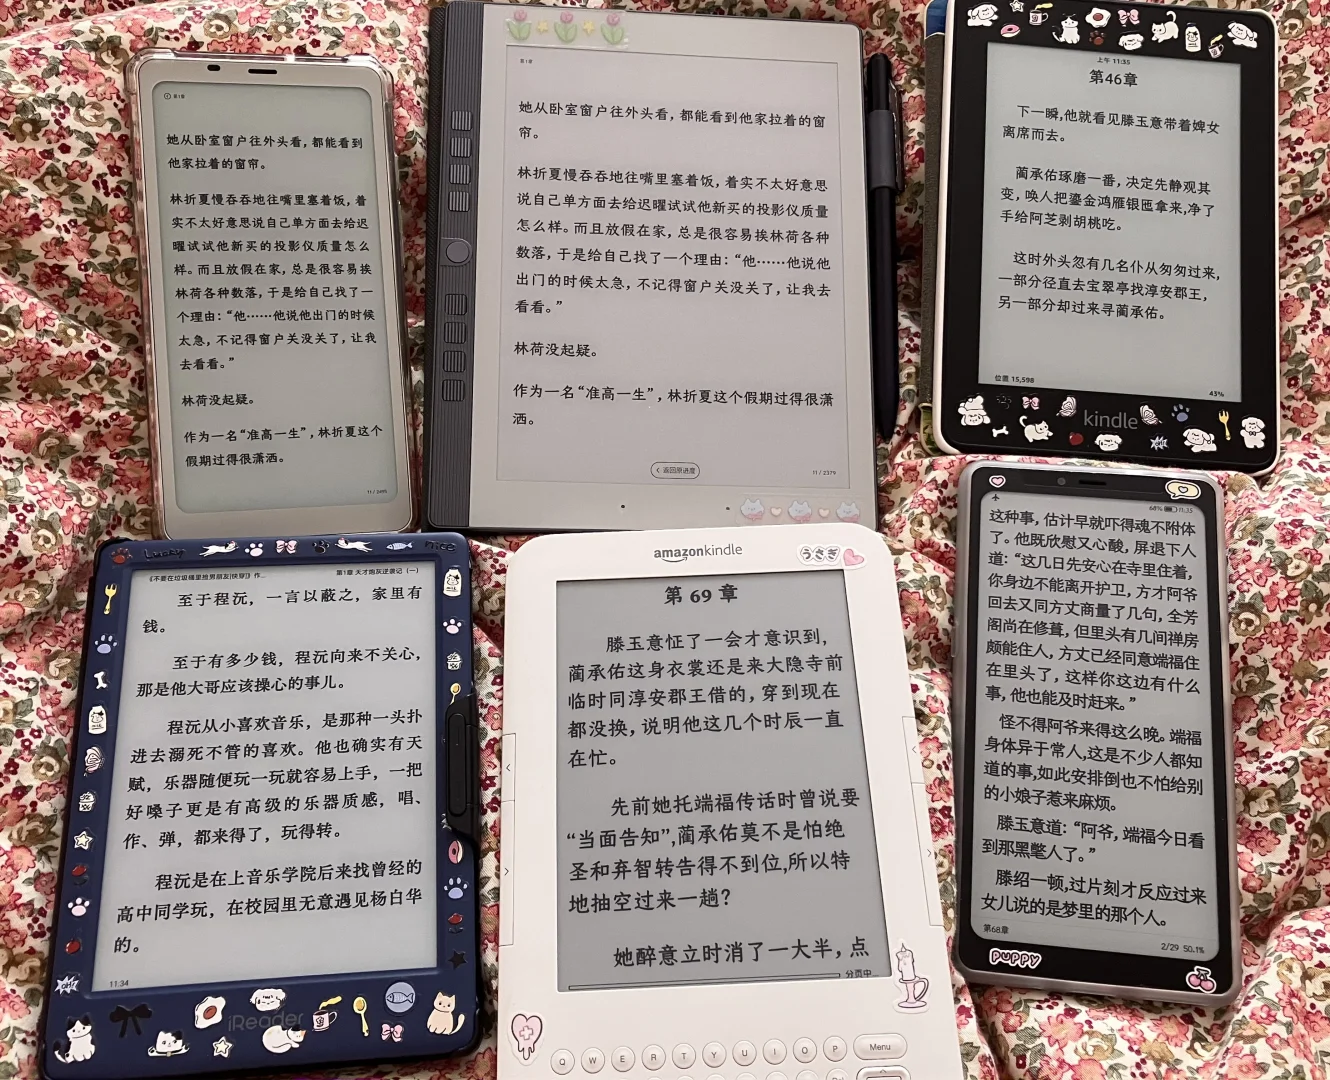 第1章
她从卧室窗户往外头看，都能看到
他家拉着的窗帘。
林折夏慢吞吞地往嘴里塞着饭，着
实不太好意思说自己单方面去给迟
曜试试他新买的投影仪质量怎么
样。而且放假在家，总是很容易挨
林荷各种数落，于是给自己找了一
个理由：“他……他说他出门的时候
太急，不记得窗户关没关了，让我
去看看。”
林荷没起疑。
作为一名“准高一生”，林折夏这个
假期过得很潇洒。
第1章
她从卧室窗户往外头看，都能看到他家拉着的窗
帘。
林折夏慢吞吞地往嘴里塞着饭，着实不太好意思
说自己单方面去给迟曜试试他新买的投影仪质量
怎么样。而且放假在家，总是很容易挨林荷各种
数落，于是给自己找了一个理由：“他……他说他
出门的时候太急，不记得窗户关没关了，让我去
看看。”
林荷没起疑。
作为一名“准高一生”，林折夏这个假期过得很潇
洒。
返回原进度
11 / 2379
上午 11:35
第46章
下一瞬,他就看见滕玉意带着婢女
离席而去。
蔺承佑琢磨一番，决定先静观其
变，唤人把鎏金鸿雁银匜拿来,净了
手给阿芝剥胡桃吃。
这时外头忽有几名仆从匆匆过来，
一部分径直去宝翠亭找淳安郡王，
另一部分却过来寻蔺承佑。
位置 15,598
43%
kindle
Lucky
Nice
《不要在垃圾桶里捡男朋友[快穿]》作...
第1章 天才炮灰逆袭记（一）
至于程沅，一言以蔽之，家里有
钱。
至于有多少钱，程沅向来不关心，
那是他大哥应该操心的事儿。
程沅从小喜欢音乐，是那种一头扑
进去溺死不管的喜欢。他也确实有天
赋，乐器随便玩一玩就容易上手，一把
好嗓子更是有高级的乐器质感，唱、
作、弹，都来得了，玩得转。
程沅是在上音乐学院后来找曾经的
高中同学玩，在校园里无意遇见杨白华
的。
11:34
iReader
amazonkindle
うさぎ
第 69 章
滕玉意怔了一会才意识到，
蔺承佑这身衣裳还是来大隐寺前
临时同淳安郡王借的，穿到现在
都没换，说明他这几个时辰一直
在忙。
先前她托端福传话时曾说要
“当面告知”,蔺承佑莫不是怕绝
圣和弃智转告得不到位,所以特
地抽空过来一趟？
她醉意立时消了一大半，点
分页中
Q W E R T Y U I O P Menu
68% 11:35
这种事，估计早就吓得魂不附体
了。他既欣慰又心酸，屏退下人
道：“这几日先安心在寺里住着，
你身边不能离开护卫，方才阿爷
回去又同方丈商量了几句，全芳
阁尚在修葺，但里头有几间禅房
颇能住人，方丈已经同意端福住
在里头了，这样你这边有什么
事，他也能及时赶来。”
怪不得阿爷来得这么晚。端福
身体异于常人,这是不少人都知
道的事,如此安排倒也不怕给别
的小娘子惹来麻烦。
滕玉意道：“阿爷，端福今日看
到那黑氅人了。”
滕绍一顿,过片刻才反应过来
女儿说的是梦里的那个人。
第68章
2/29 50.1%
PUPPY